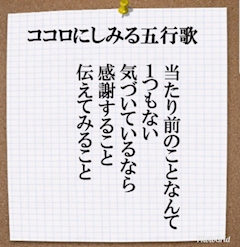 ココロにしみる五行歌
当たり前のことなんて
1つもない
気づいているなら
感謝すること
伝えてみること